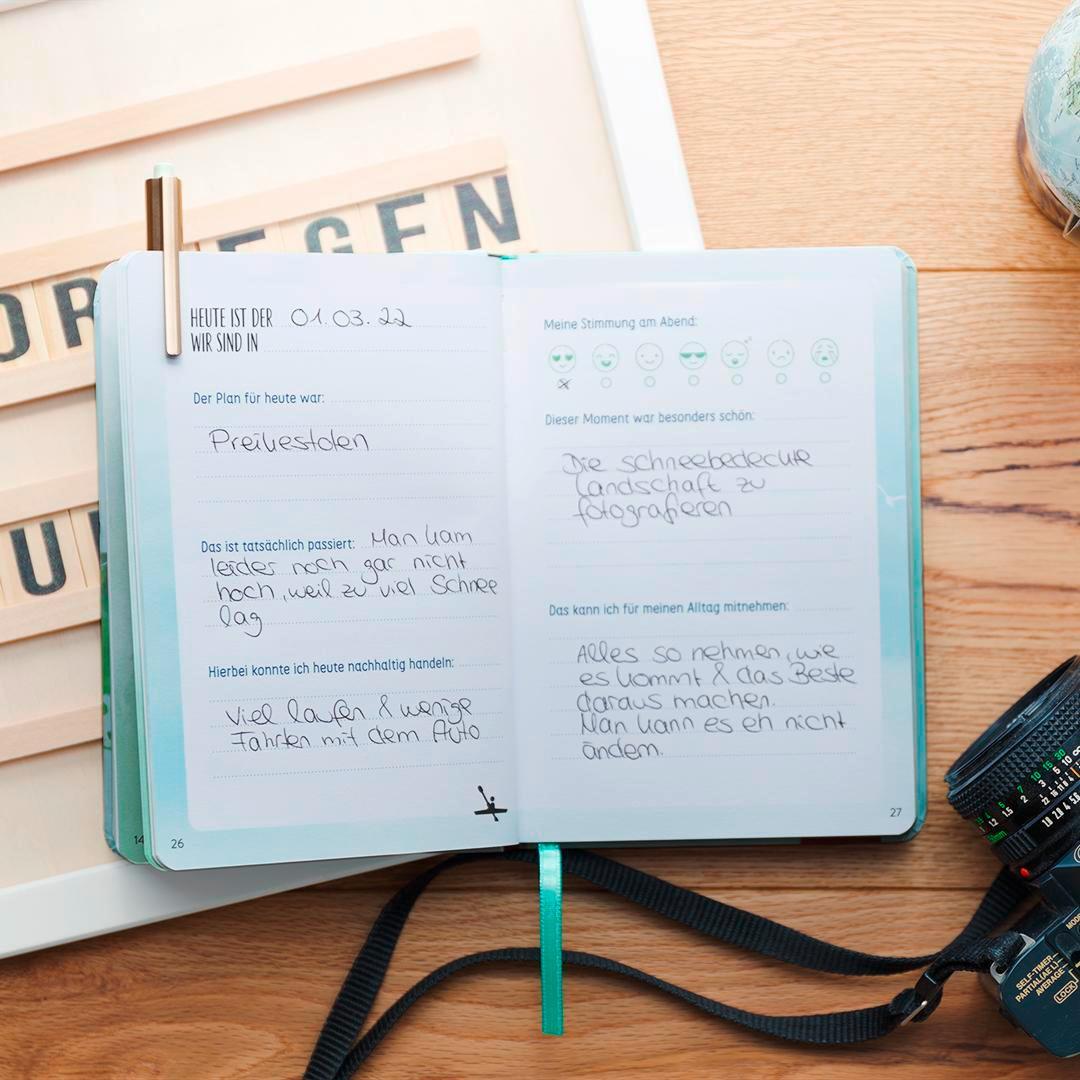 EGEN
OR
U
HEUTE IST DER 01.03.22
WIR SIND IN
Der Plan für heute war:
Preikestolen
Das ist tatsächlich passiert: Man kam
leider noch gar nicht
hoch, weil zu viel Schnee
lag
Hierbei konnte ich heute nachhaltig handeln:
Viel laufen & wenige
Fahrten mit dem Auto
14
26
Meine Stimmung am Abend:
Dieser Moment war besonders schön:
Die schneebedeckte
Landschaft zu
fotografieren
Das kann ich für meinen Alltag mitnehmen:
Alles so nehmen, wie
es kommt & das Beste
daraus machen.
Man kann es eh nicht
ändern.
27
SELF-TIMER
PARTIAL(AE L)
AVERAGE
LOCK